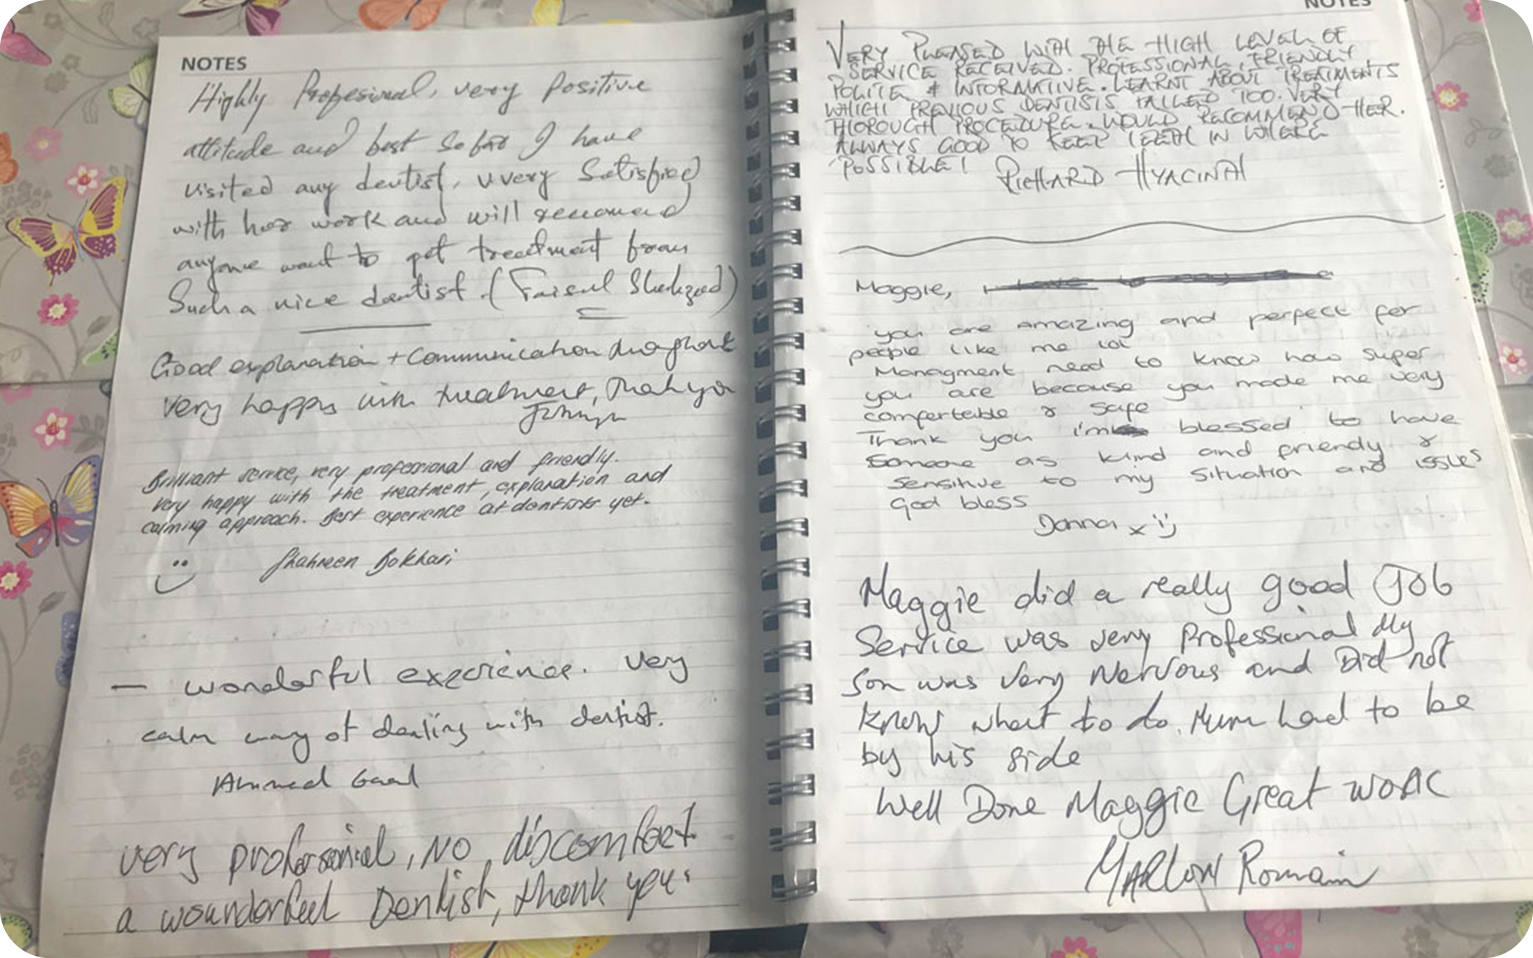 NOTES
Highly Profesional, very Positive
attitude and best so far I have
visited any dentist, vvery Satisfied
with her work and will
anyone want to get treatment from
Such a nice dentist. (Faisal Shahzad)
Good explanation + Communication throughout
very happy with treatment, Thank you
Brilliant service, very professional and friendly.
Very happy with the treatment, explanation and
calming approach. Best experience at dentists yet.
Shahreen Bokhari
– wonderful experience. Very
calm way of dealing with dentist.
Ahmed Gaal
very professonial, NO, discomfort
a wounderfeul Dentist, thank you.
NOTES
VERY PLEASED WITH THE HIGH LEVEL OF
SERVICE RECEIVED. PROFESSIONAL, FRIENDLY
POLITE & INFORMATIVE. LEARNT ABOUT TREATMENTS
WHICH PREVIOUS DENTISTS FAILED TOO. VERY
THOROUGH PROCEDURE. WOULD RECOMMEND HER.
ALWAYS GOOD TO KEEP TEETH IN WHERE
POSSIBLE!
RICHARD HYACINTH
Maggie,
you are amazing and perfect for
people like me lol
Managment need to know how super
you are because you made me very
comfertable & safe
Thank you i'm blessed to have
someone as kind and friendy &
sensitive to my situation and issues
God bless
Donna x :)
Maggie did a really good Job
Service was very Professional My
Son was Very Nervous and Did not
know what to do. Mum had to be
by his side
Well Done Maggie Great work
MARLON Romain